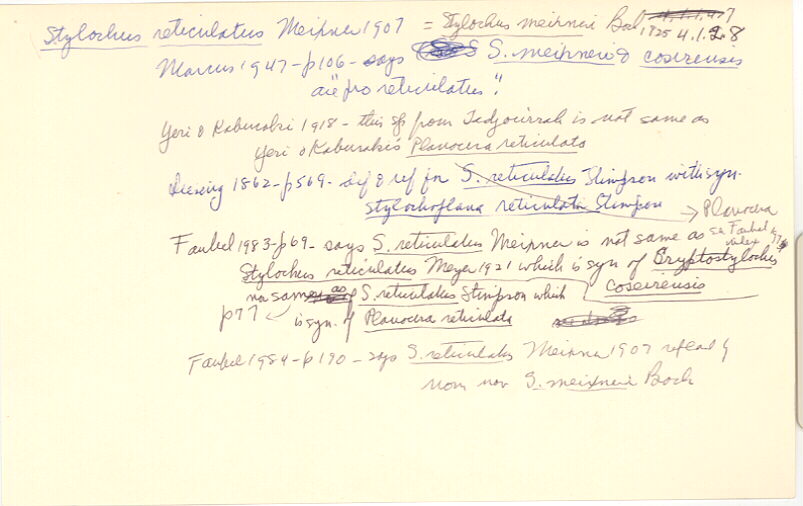 Stylochus reticulatus Meixner 1907 = Stylochus meixneri Bock 1925 4.1.2.8
Marcus 1947-p106- says S. meixneri & coseirensis
are "pro reticulatus".
Yeri & Kaburaki 1918 - this sp from Tadjourrah is not same as
Yeri & Kaburaki's Planocera reticulata
Diesing 1862-p569- def & ref for S. reticulatus Stimpson with syn.
Stylochoplana reticulata Stimpson → Planocera
Faubel 1983-p69- says S. reticulatus Meixner is not same as
Stylochus reticulatus Meyer 1921 which is syn of Cryptostylochus
coseirensis
nor same as S. reticulatus Stimpson which
p77 is syn. of Planocera reticulata
Faubel 1984-p190- says S. reticulatus Meixner 1907 replaced by
nom nov S. meixneri Bock